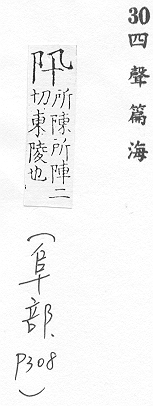 30四聲篇海
阠
所陳所陣二
切東陵也
(阜部.
P308)